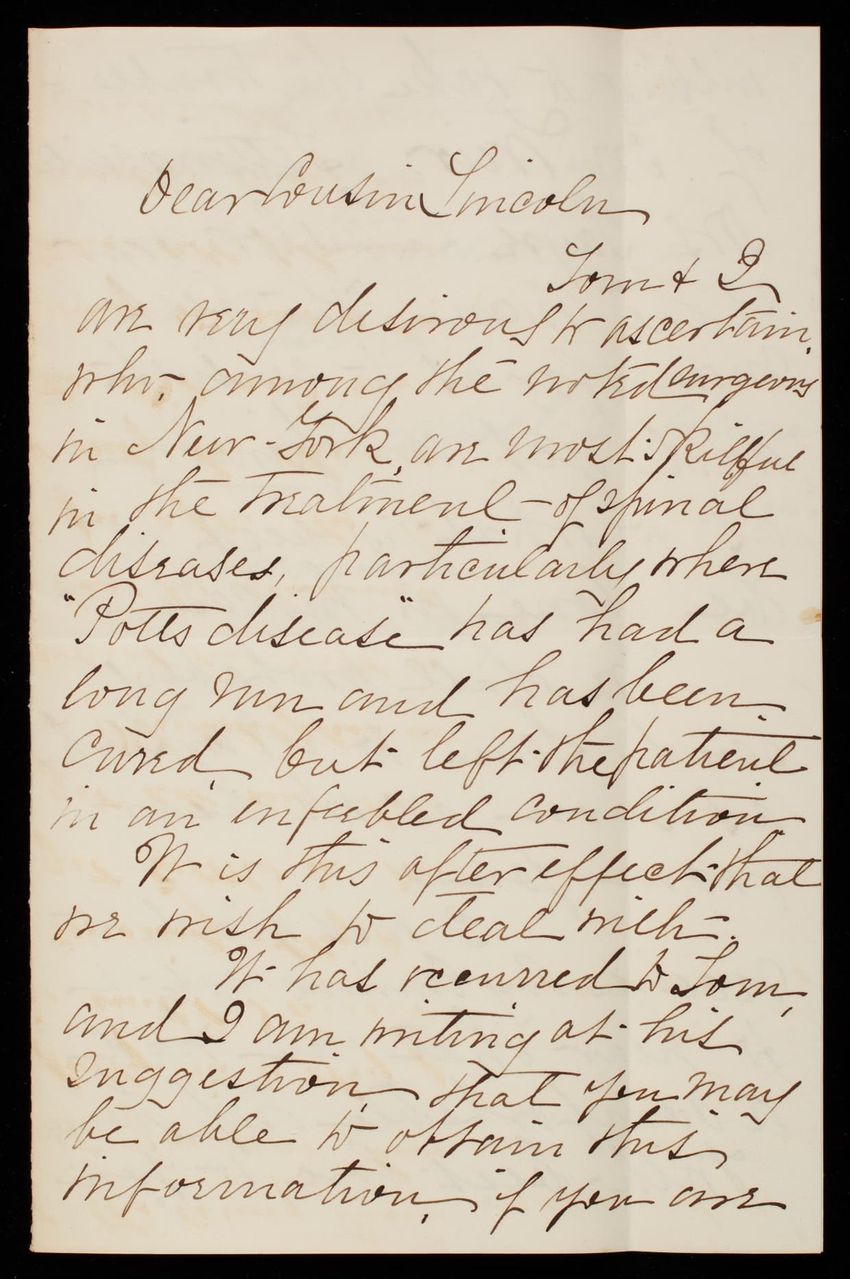 Dear Cousin Lincoln
Tom & I
are very desirous to ascertain,
who, among the noted surgeons
in New-York, are most skilful
in the treatment of spinal
diseases, particularly where
"Potts disease" has had a
long run and has been
cured, but left the patient
in an enfeebled condition.
It is this after effect that
we wish to deal with.
It has occurred to Tom,
and I am writing at his
suggestion, that you may
be able to obtain this
information, if you are